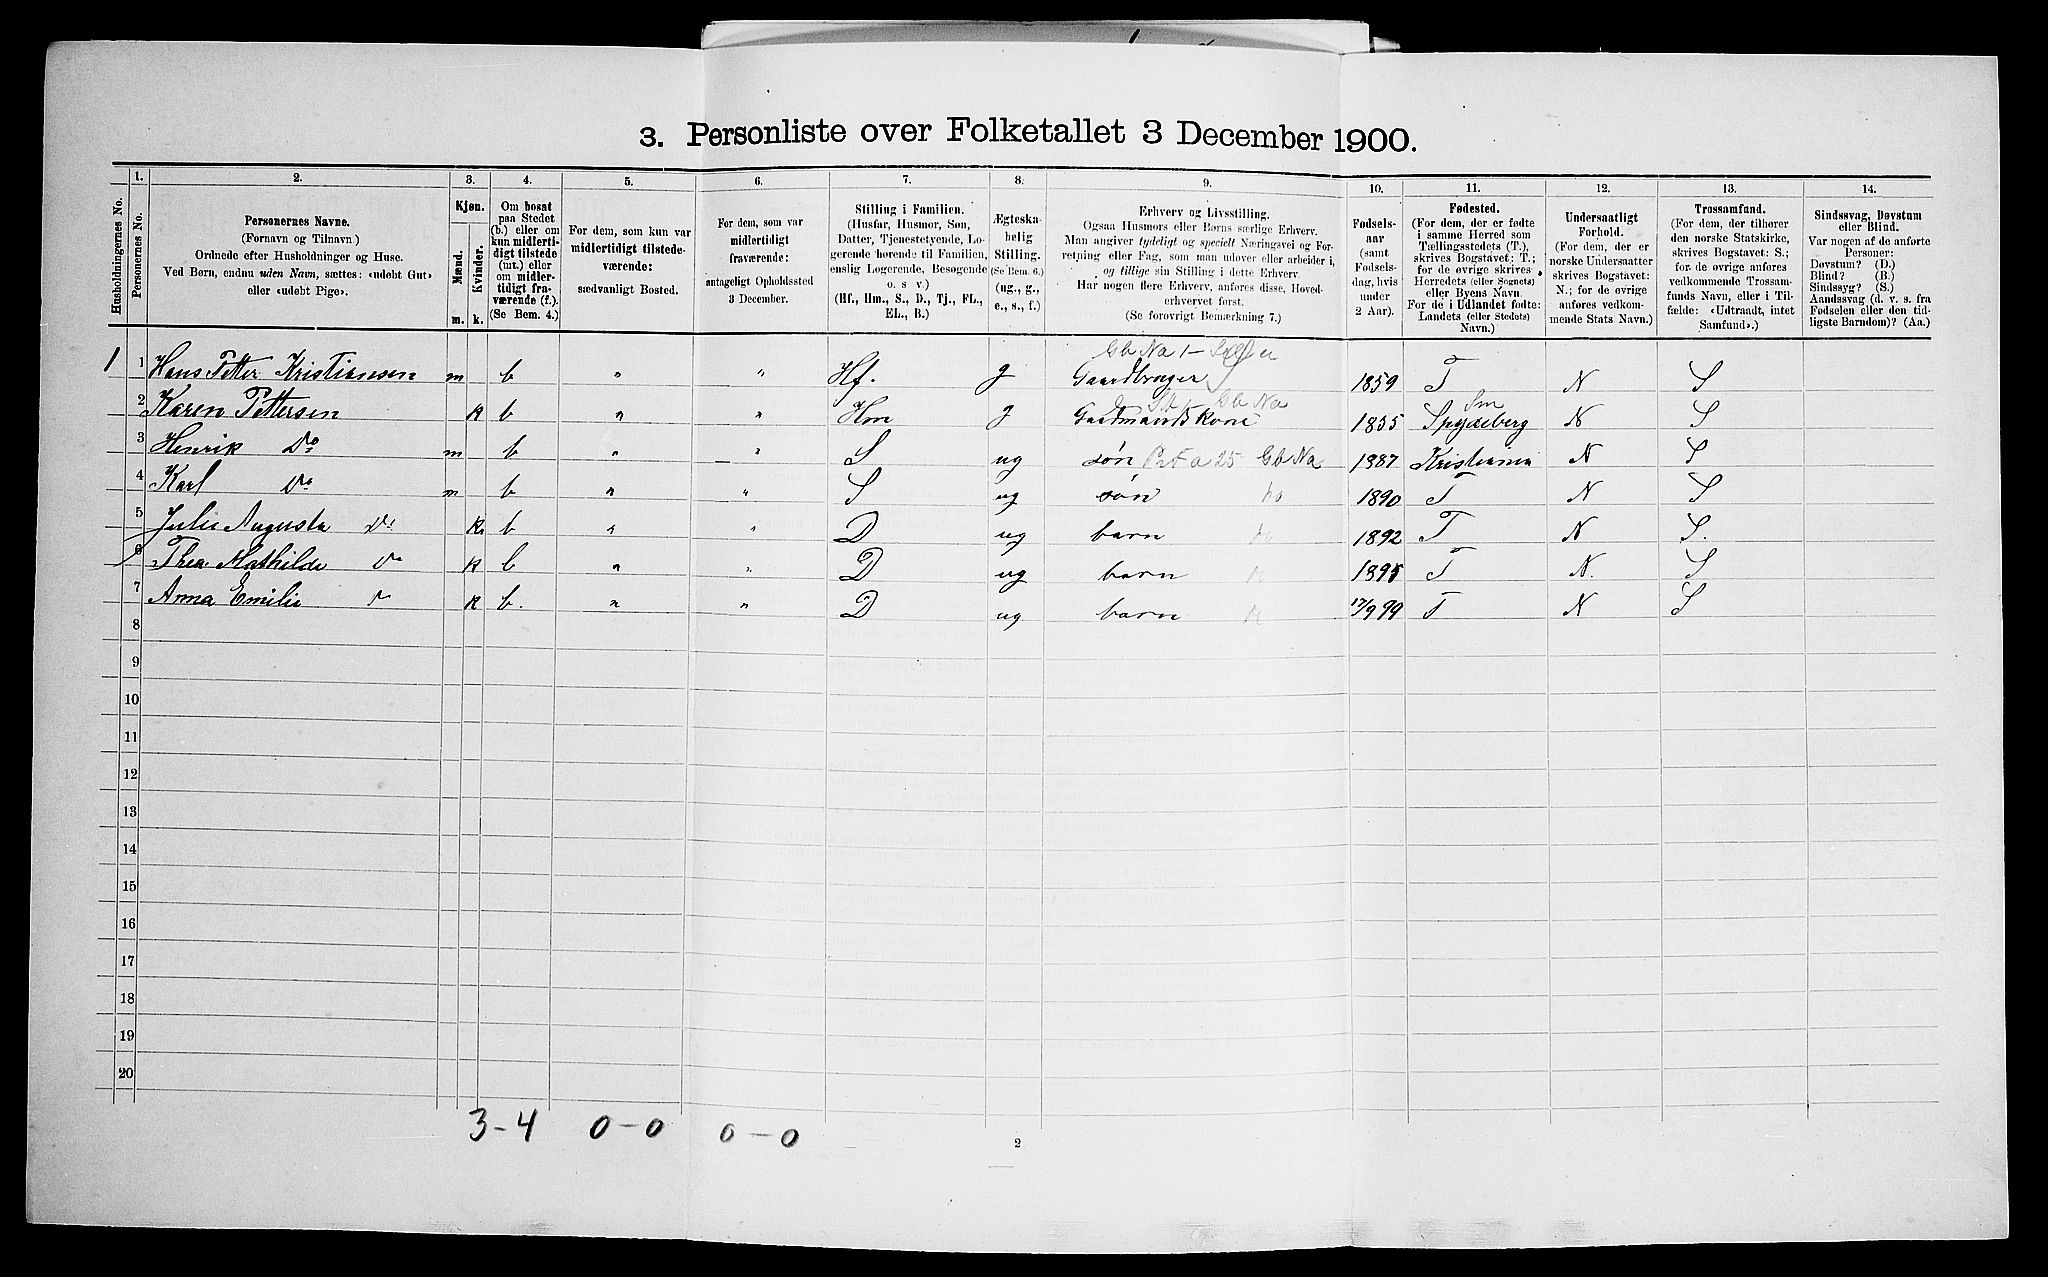 3. Personliste over Folketallet 3 December 1900.
1. 2. 3. 4. 5. 6. 7. 8. 9. 10. 11. 12. 13. 14.
Husholdningernes No.
Personernes No.
Personernes Navne.
(Fornavn og Tilnavn)
Ordnede efter Husholdninger og Huse.
Ved Børn, endnu uden Navn, sættes: «udøbt Gut»
eller «udøbt Pige».
Kjøn.
Mænd.
Kvinder.
m. k.
Om bosat
paa Stedet
(b.) eller om
kun midlerti-
digt tilstede
(mt.) eller
om midler-
tidigt fra-
værende (f.).
(Se Bem. 4.)
For dem, som kun var
midlertidigt tilstede-
værende:
sædvanligt Bosted.
For dem, som var
midlertidigt
fraværende:
antageligt Opholdssted
3 December.
Stilling i Familien.
(Husfar, Husmor, Søn,
Datter, Tjenestetyende, Lo-
gerende hørende til Familien,
enslig Logerende, Besøgende
o. s v.)
(Hf., Hm., S., D., Tj., FL.,
EL., B.)
Ægteska-
belig
Stilling.
(Se Bem. 6.)
(ug., g.,
e., s., f.)
Erhverv og Livsstilling.
Ogsaa Husmors eller Børns særlige Erhverv.
Man angiver tydeligt og specielt Næringsvei og For-
retning eller Fag, som man udøver eller arbeider i,
og tillige sin Stilling i dette Erhverv.
Har nogen flere Erhverv, anføres disse, Hoved-
erhvervet først.
(Se forøvrigt Bemærkning 7.)
Fødsels-
aar
(samt
Fødsels-
dag, hvis
under
2 Aar).
Fødested.
(For dem, der er fødte
i samme Herred som
Tællingsstedets (T.),
skrives Bogstavet: T.;
for de øvrige skrives
Herredets (eller Sognets)
eller Byens Navn.
For de i Udlandet fødte:
Landets (eller Stedets)
Navn.)
Undersaatligt
Forhold.
(For dem, der er
norske Undersaatter
skrives Bogstavet:
N.; for de øvrige
anføres vedkom-
mende Stats Navn.)
Trossamfund.
(For dem, der tilhører
den norske Statskirke,
skrives Bogstavet: S.;
for de øvrige anføres
vedkommende Trossam-
funds Navn, eller i Til-
fælde: «Udtraadt, intet
Samfund».)
Sindssvag, Døvstum
eller Blind.
Var nogen af de anførte
Personer:
Døvstum? (D.)
Blind? (B.)
Sindssyg? (S.)
Aandssvag (d. v. s. fra
Fødselen eller den tid-
ligste Barndom)? (Aa.)
Gb Na 1 -
1 1 Hans Petter Kristiansen m b " " Hf. g Gaardbruger 1859 T N S
Gb Na Sm
2 Karen Pettersen k b " " Hm g Gaardmandskone 1855 Spydeberg N S
3 Henrik Do m b " " S ug søn 25 Gb Na 1887 Kristiania N S
4 Karl Do m b " " S ug søn do 1890 T N S
5 Julie Augusta Do k b " " D ug barn do 1892 T N S.
6 Thea Mathilde Do k b " " D ug barn do 1895 T N. S
7 Anna Emilie D k b. " " D ug barn 17/9 99 T N S
8
9
10
11
12
13
14
15
16
17
18
19
20
3-4 0-0 0-0
2